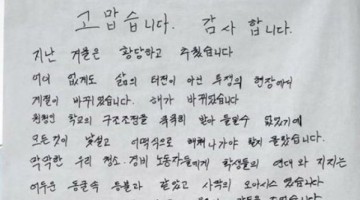 고맙습니다. 감사 합니다.
지난 겨울은 황당하고 추웠습니다
어이 없게도 삶의 터전이 아닌 투쟁의 현장에서
계절이 바뀌었습니다. 해가 바뀌었습니다
학교의 구조조정을 받아 들일수 없었기에
모든것이 낯설고 헤쳐 나가야 할지 몰랐습니다.
막막한 우리 청소·경비 노동자들에게 학생들의 연대와 지지는
어두운 동굴속 등불과 같았고 사막의 오아시스 였습니다